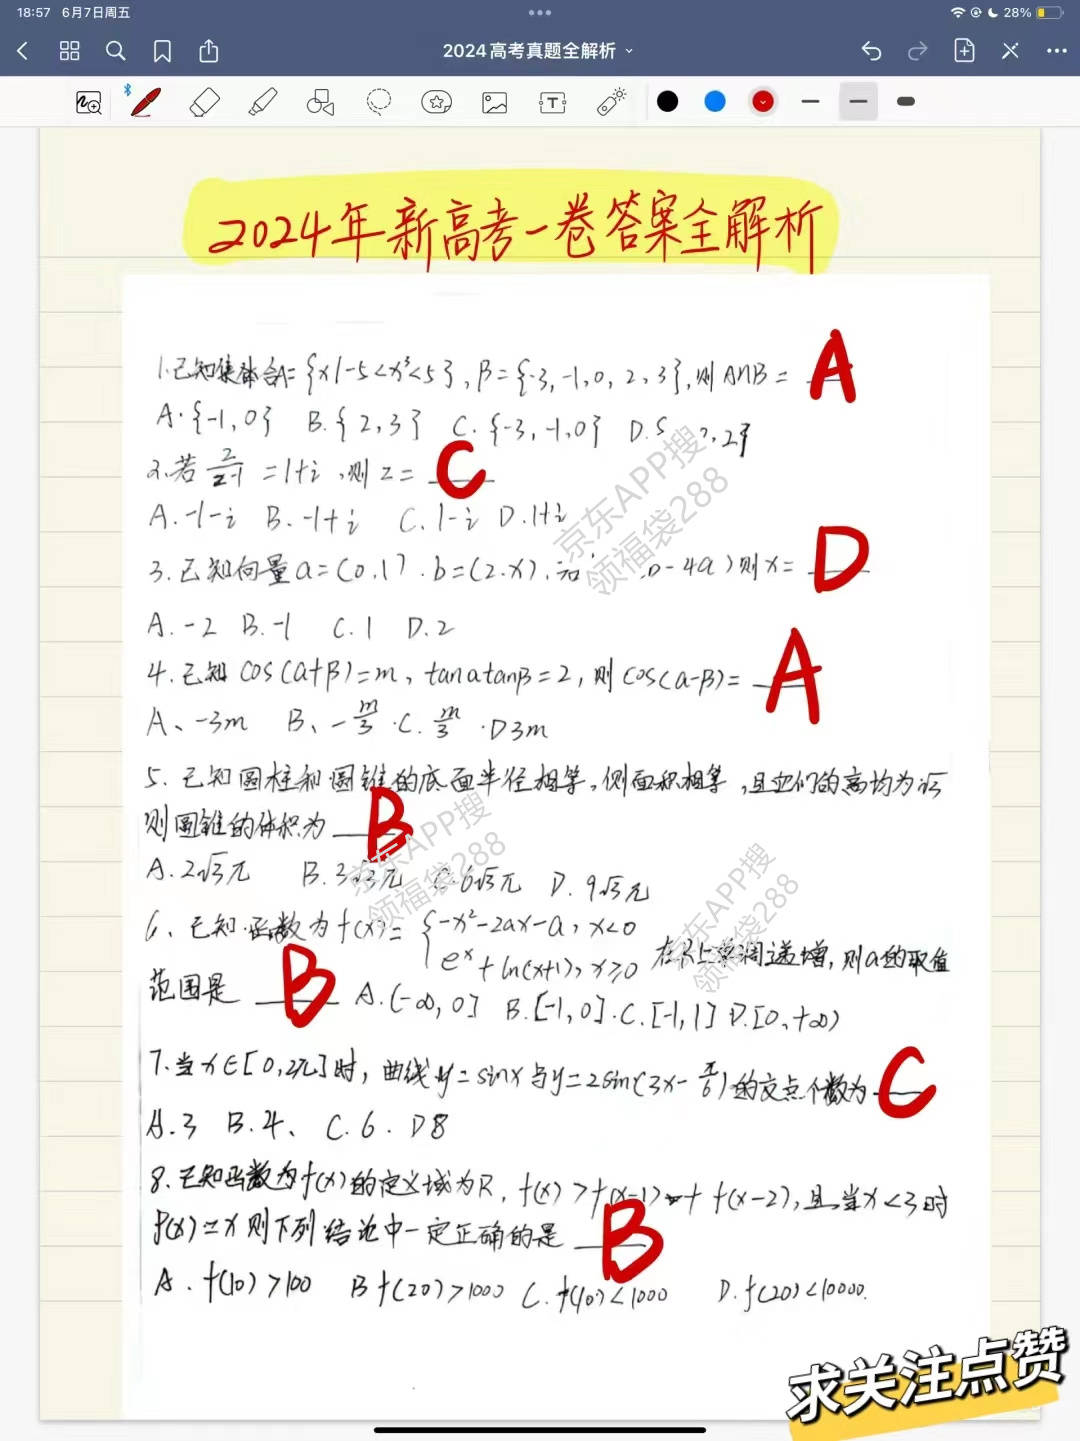 18:57 6月7日周五
28%
2024高考真题全解析
2024年新高考一卷答案全解析
1.已知集合A={x|-5<x³<5},B={-3,-1,0,2,3},则A∩B= A
A.{-1,0} B.{2,3} C.{-3,-1,0} D. ,2}
2.若 z/(z-1) =1+i,则z= C
A.-1-i B.-1+i C.1-i D.1+i
3.已知向量a=(0,1).b=(2.x).若 b-4a)则x= D
A.-2 B.-1 C.1 D.2
4.已知cos(α+β)=m,tanαtanβ=2,则cos(α-β)= A
A、-3m B、-m/3 .C.m/3 .D3m
5.已知圆柱和圆锥的底面半径相等,侧面积相等,且它们的高均为√3
则圆锥的体积为 B
A.2√3π B.3√3π C.6√3π D.9√3π
6、已知函数为f(x)= {-x²-2ax-a,x<0
e^x+ln(x+1),x≥0 在R上单调递增,则a的取值
范围是 B A.(-∞,0] B.[-1,0].C.[-1,1] D.[0,+∞)
7.当x∈[0,2π]时,曲线y=sinx与y=2sin(3x-π/6)的交点个数为 C
A.3 B.4、 C.6. D8
8.已知函数为f(x)的定义域为R,f(x)>f(x-1)+f(x-2),且当x<3时
f(x)=x则下列结论中一定正确的是 B
A.f(10)>100 B f(20)>1000 C.f(10)<1000 D.f(20)<10000.
京东APP搜
领福袋288
京东APP搜
领福袋288
京东APP搜
领福袋288
求关注点赞